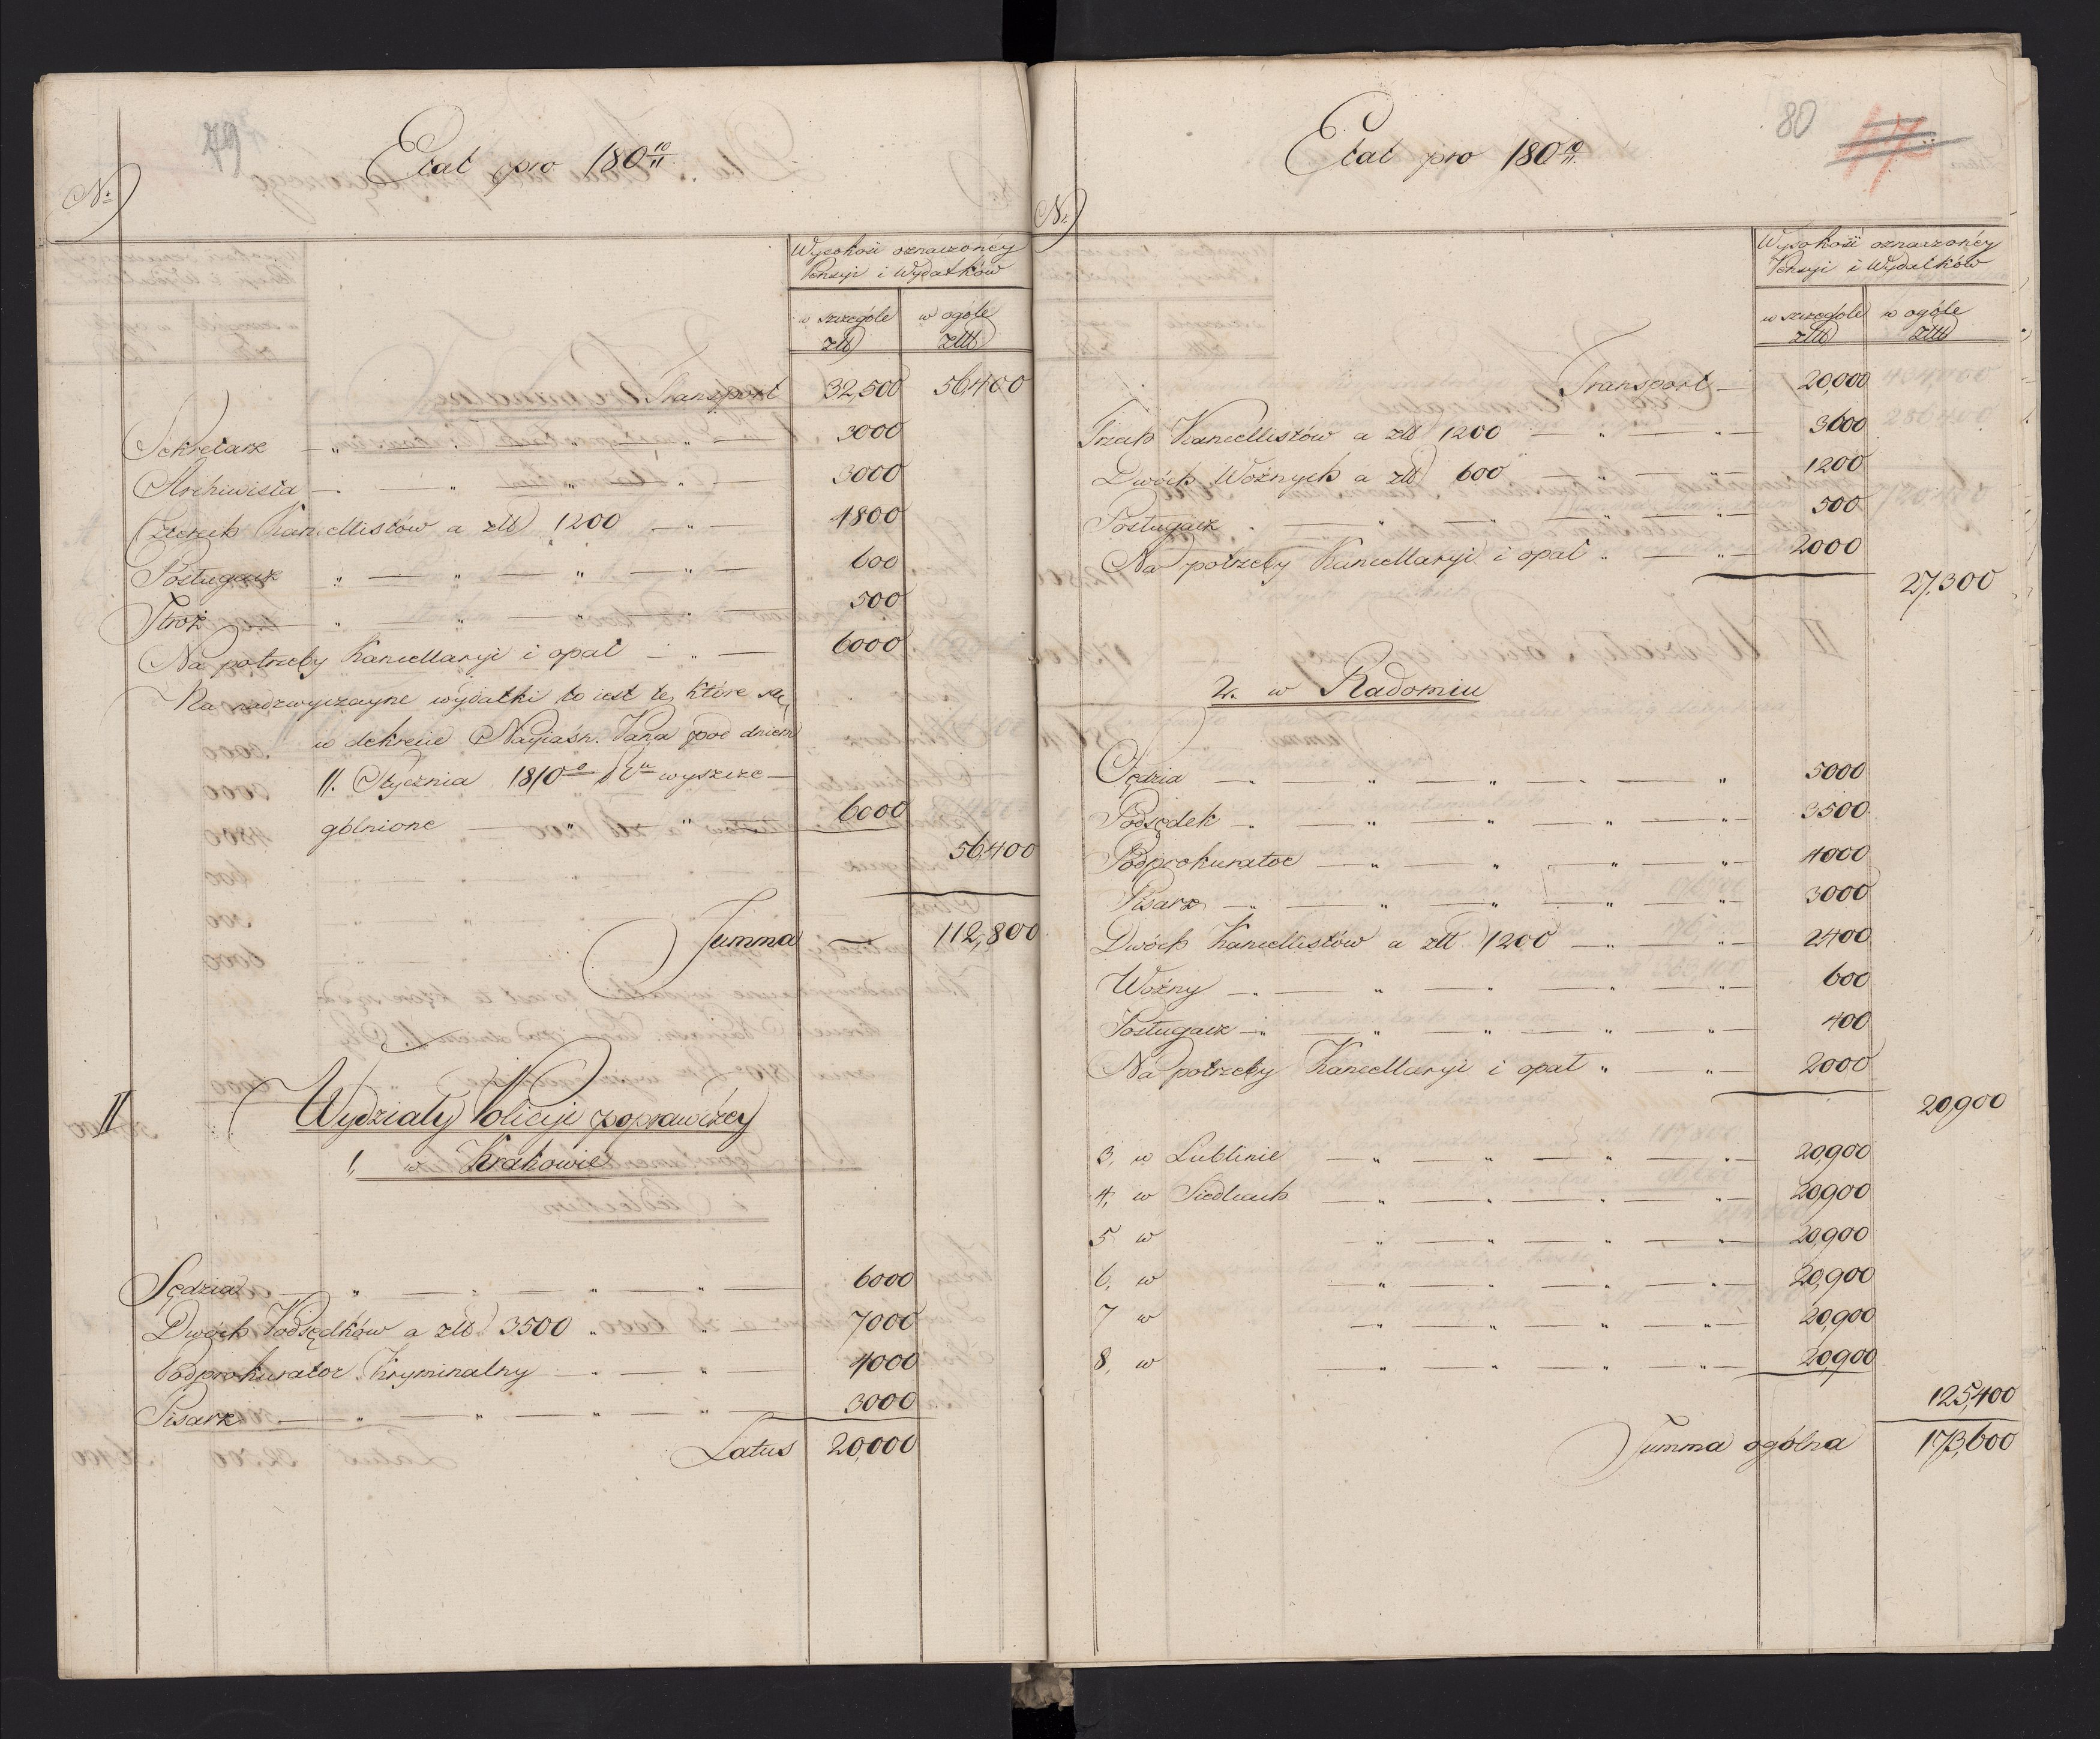 79
Etat pro 180 10/11.
No
Wysokość oznaczonéy
Pensyi i Wydatków
w szczególe w ogóle
złł złł
Transport 32,500 56,400
Sekretarz 3000
Archiwista 3000
Czterech Kancellistów a złł 1200 4800
Posługacz 600
Stroż 500
Na potrzeby Kancellaryi i opał 6000
Na nadzwyczayne wydatki to iest te, które są
w dekrecie Nayiaśn. Pana pod dniem
11. Stycznia 1810 wyszcze-
gólnione 6000
56,400
Summa 112,800
II Wydziały Policyi poprawczéy
1, w Krakowie
Sędzia 6000
Dwóch Podsędków a złł 3500 7000
Podprokurator Kryminalny 4000
Pisarz 3000
Latus 20,000
80
Etat pro 180 10/11.
No
Wysokość oznaczonéy
Pensyi i Wydatków
w szczególe w ogóle
złł złł
Transport 20,000
Trzech Kancellistów a złł 1200 3600
Dwóch Woźnych a złł 600 1200
Posługacz 500
Na potrzeby Kancellaryi i opał 2000
27,300
2. w Radomiu
Sędzia 5000
Podsędek 3500
Podprokurator 4000
Pisarz 3000
Dwóch Kancellistów a złł 1200 2400
Woźny 600
Posługacz 400
Na potrzeby Kancellaryi i opał 2000
20,900
3, w Lublinie 20,900
4, w Siedlcach 20,900
5, w 20,900
6, w 20,900
7 w 20,900
8, w 20,900
125,400
Summa ogólna 173,600